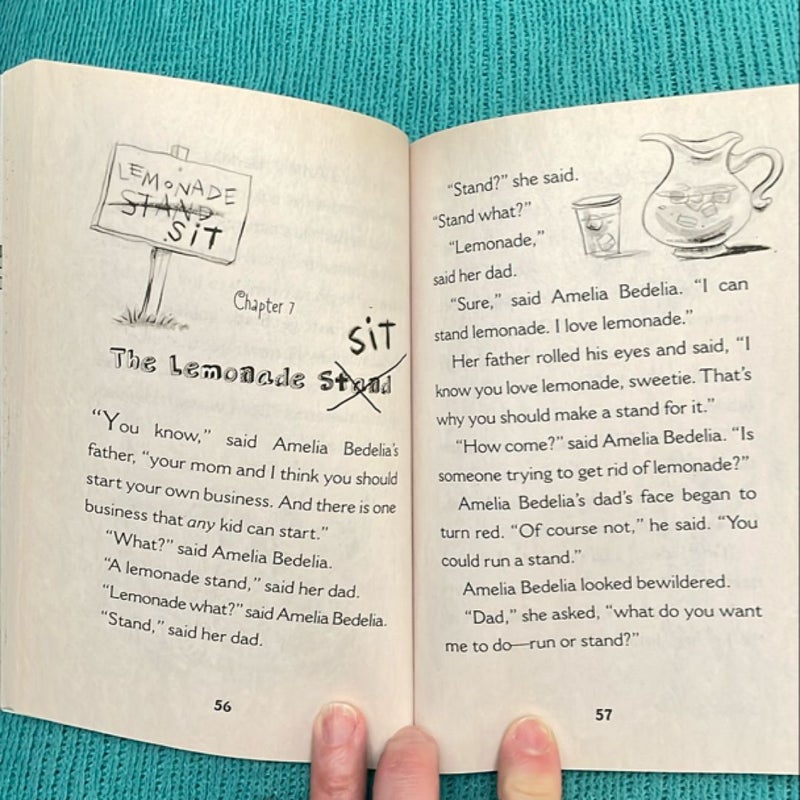 LEMONADE
STAND
SIT
Chapter 7
SIT
The Lemonade Stand
“You know,” said Amelia Bedelia's
father, “your mom and I think you should
start your own business. And there is one
business that any kid can start.”
“What?” said Amelia Bedelia.
“A lemonade stand,” said her dad.
“Lemonade what?” said Amelia Bedelia.
“Stand,” said her dad.
56
“Stand?” she said.
“Stand what?”
“Lemonade,”
said her dad.
“Sure,” said Amelia Bedelia. “I can
stand lemonade. I love lemonade.”
Her father rolled his eyes and said, “I
know you love lemonade, sweetie. That's
why you should make a stand for it.”
“How come?” said Amelia Bedelia. “Is
someone trying to get rid of lemonade?”
Amelia Bedelia's dad's face began to
turn red. “Of course not,” he said. “You
could run a stand.”
Amelia Bedelia looked bewildered.
“Dad,” she asked, “what do you want
me to do—run or stand?”
57